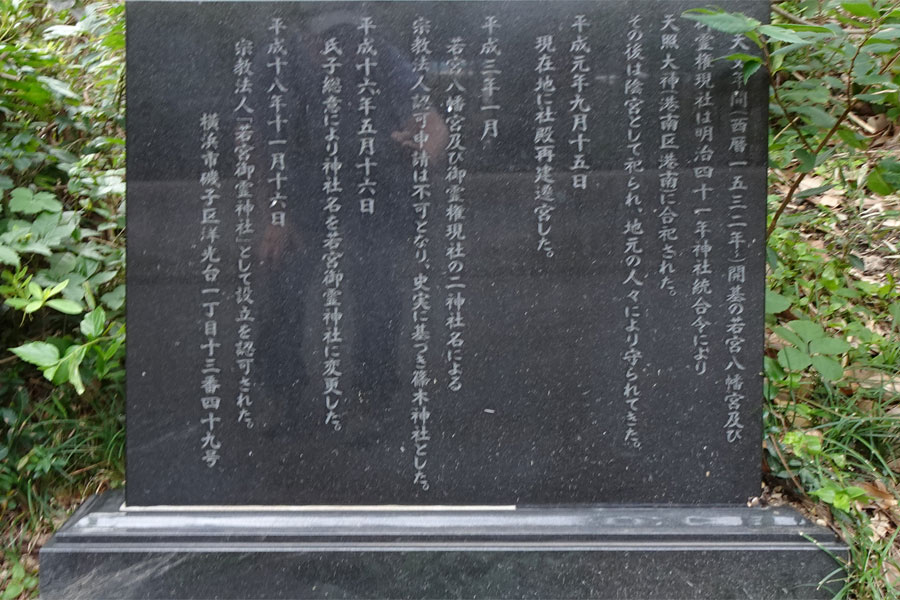 天文年間(西暦一五三二年〜)開基の若宮八幡宮及び
御霊権現社は明治四十一年神社統合令により
天照大神(港南区港南)に合祀された。
その後は陰宮として祀られ、地元の人々により守られてきた。
平成元年九月十五日
現在地に社殿再建遷宮した。
平成三年一月
若宮八幡宮及び御霊権現社の二神社名による
宗教法人認可申請は不可となり、史実に基づき篠木神社とした。
平成十六年五月十六日
氏子総意により神社名を若宮御霊神社に変更した。
平成十八年十一月十六日
宗教法人「若宮御霊神社」として設立を認可された。
横浜市磯子区洋光台一丁目十三番四十九号